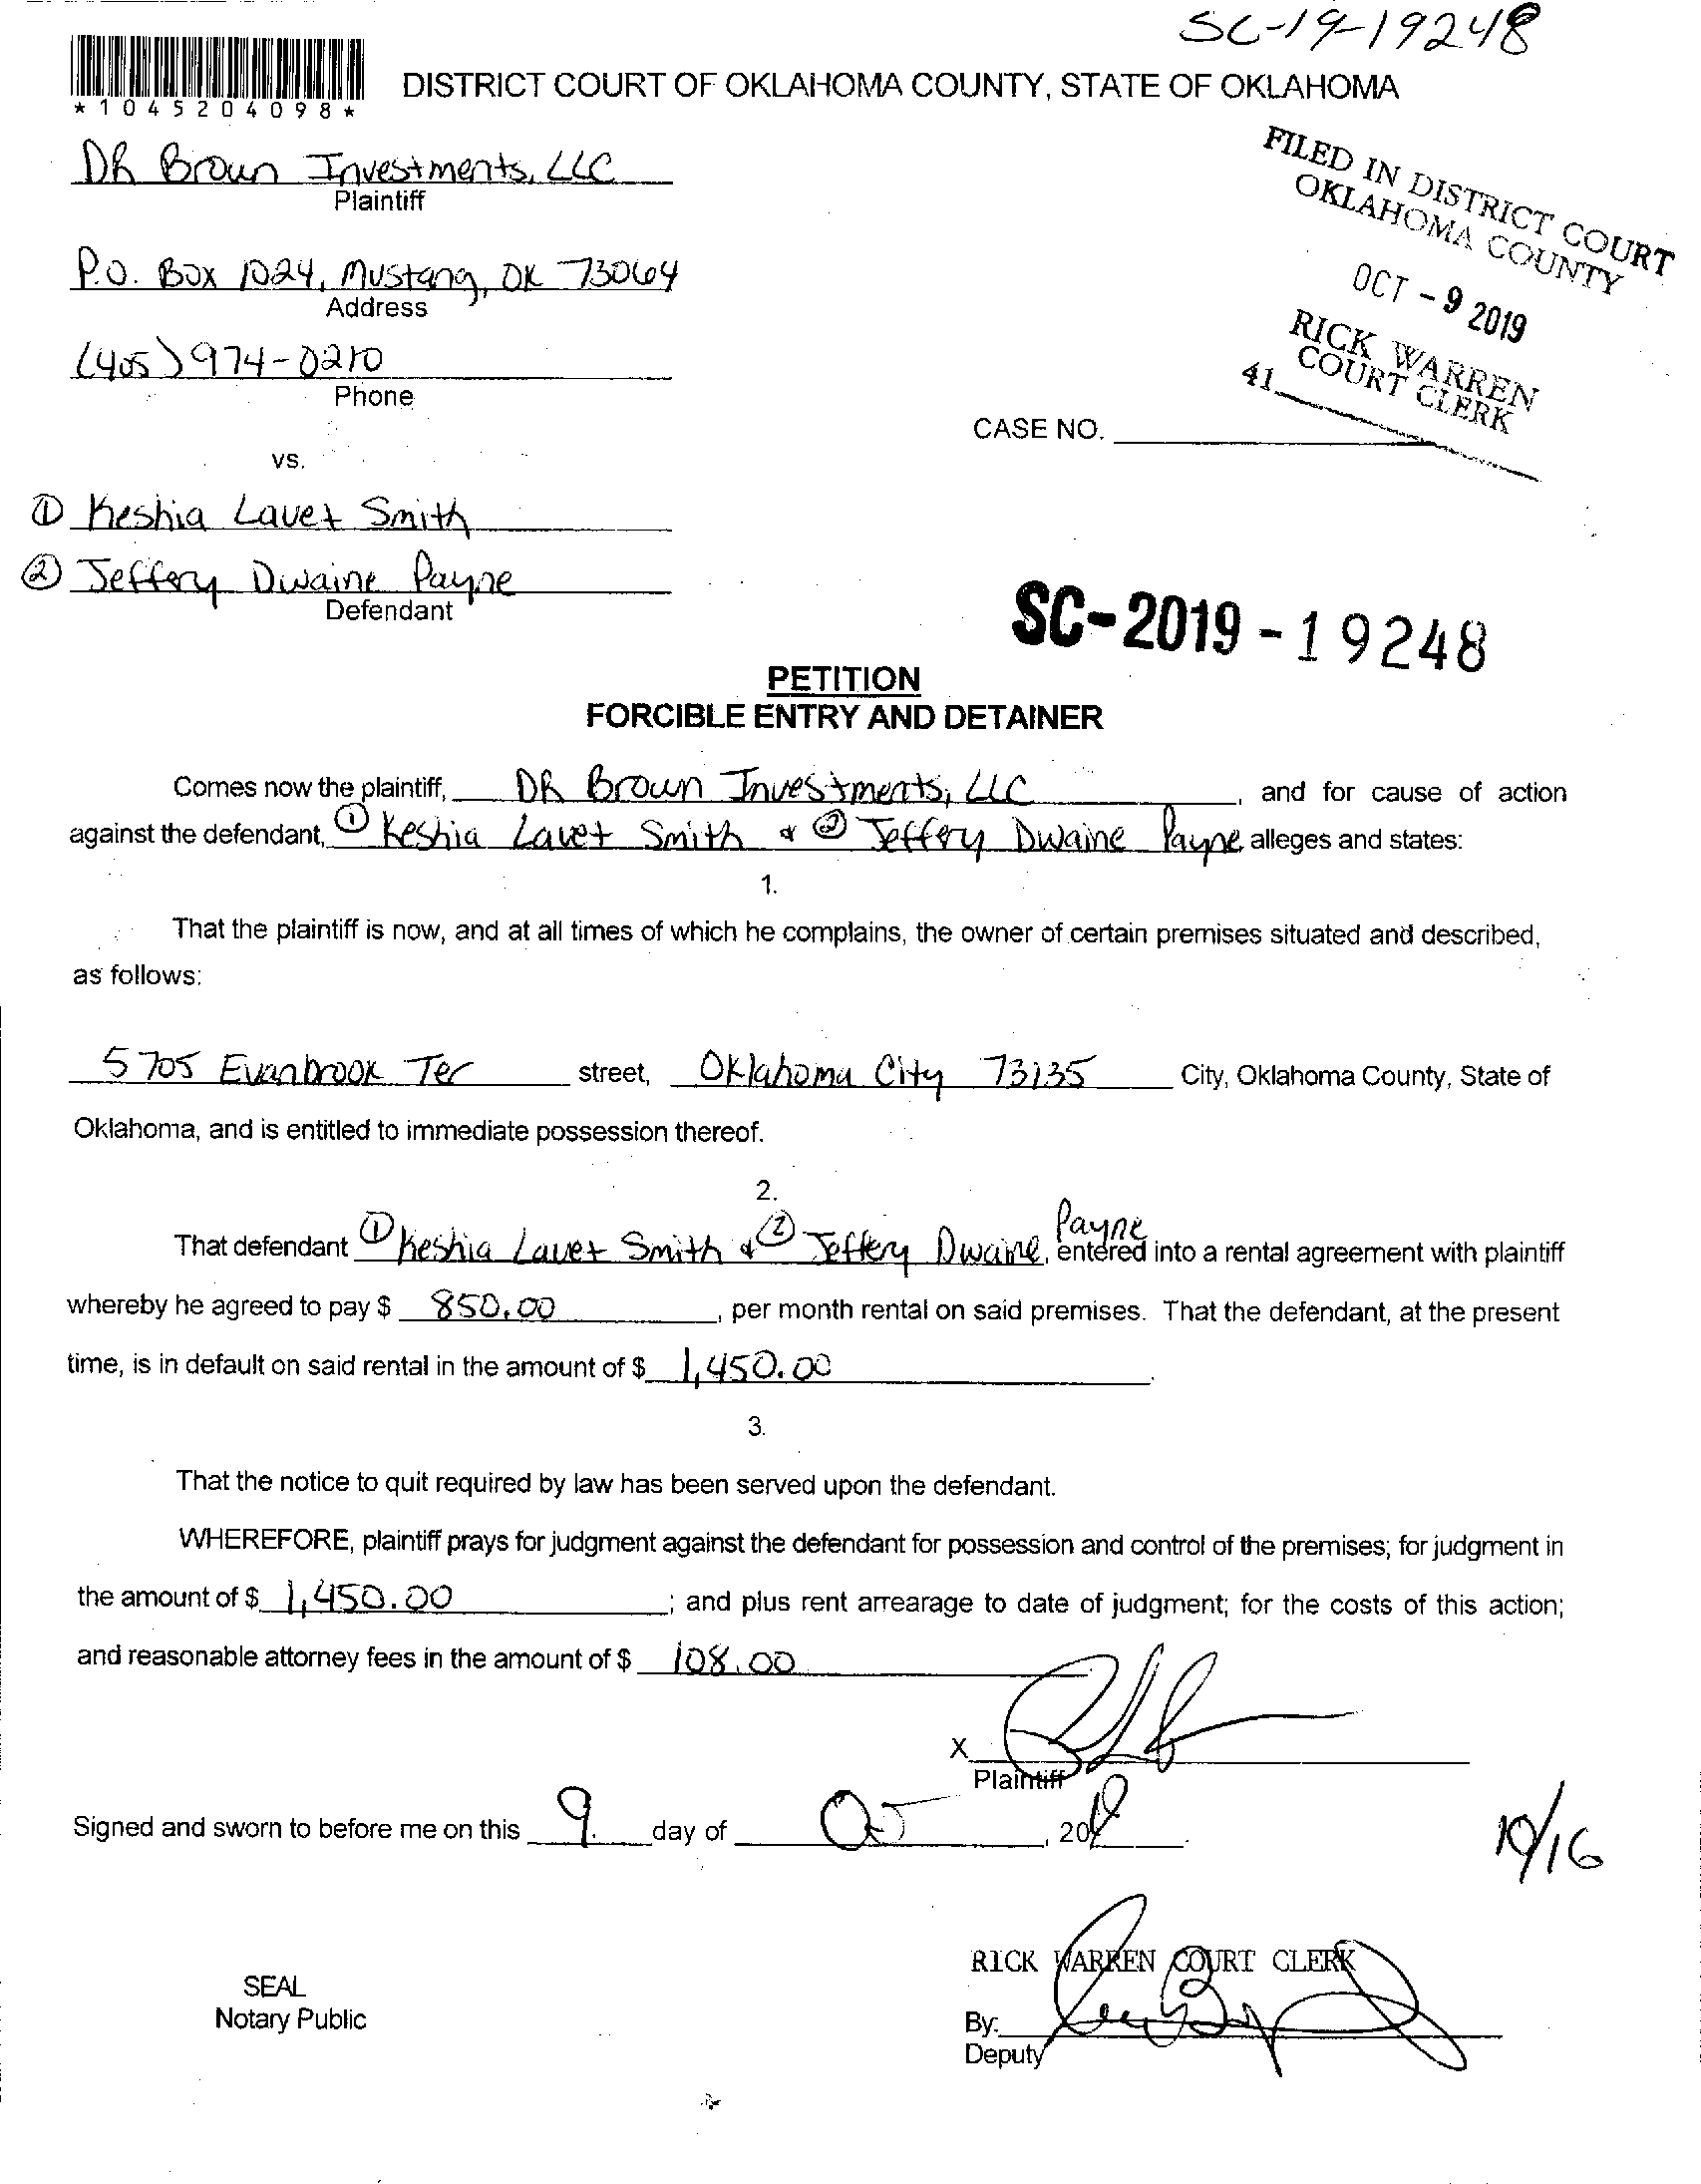 SC-19-19248
*1045204098*
DISTRICT COURT OF OKLAHOMA COUNTY, STATE OF OKLAHOMA
FILED IN DISTRICT COURT
OKLAHOMA COUNTY
OCT - 9 2019
RICK WARREN
COURT CLERK
41
DR Brown Investments, LLC
Plaintiff
P.O. Box 1024, Mustang, OK 73064
Address
(405) 974-0210
Phone
CASE NO.
vs.
① Keshia Lavet Smith
② Jeffery Dwaine Payne
Defendant
SC-2019-19248
PETITION
FORCIBLE ENTRY AND DETAINER
Comes now the plaintiff, DR Brown Investments, LLC, and for cause of action
against the defendant, ① Keshia Lavet Smith & ② Jeffery Dwaine Payne alleges and states:
1.
That the plaintiff is now, and at all times of which he complains, the owner of certain premises situated and described,
as follows:
5705 Evanbrook Ter street, Oklahoma City 73135 City, Oklahoma County, State of
Oklahoma, and is entitled to immediate possession thereof.
2.
That defendant ① Keshia Lavet Smith & ② Jeffery Dwaine Payne, entered into a rental agreement with plaintiff
whereby he agreed to pay $ 850.00, per month rental on said premises. That the defendant, at the present
time, is in default on said rental in the amount of $ 1,450.00.
3.
That the notice to quit required by law has been served upon the defendant.
WHEREFORE, plaintiff prays for judgment against the defendant for possession and control of the premises; for judgment in
the amount of $ 1,450.00; and plus rent arrearage to date of judgment; for the costs of this action;
and reasonable attorney fees in the amount of $ 108.00
X
Plaintiff
Signed and sworn to before me on this 9 day of Oct, 2019.
10/16
RICK WARREN COURT CLERK
SEAL
Notary Public
By:
Deputy